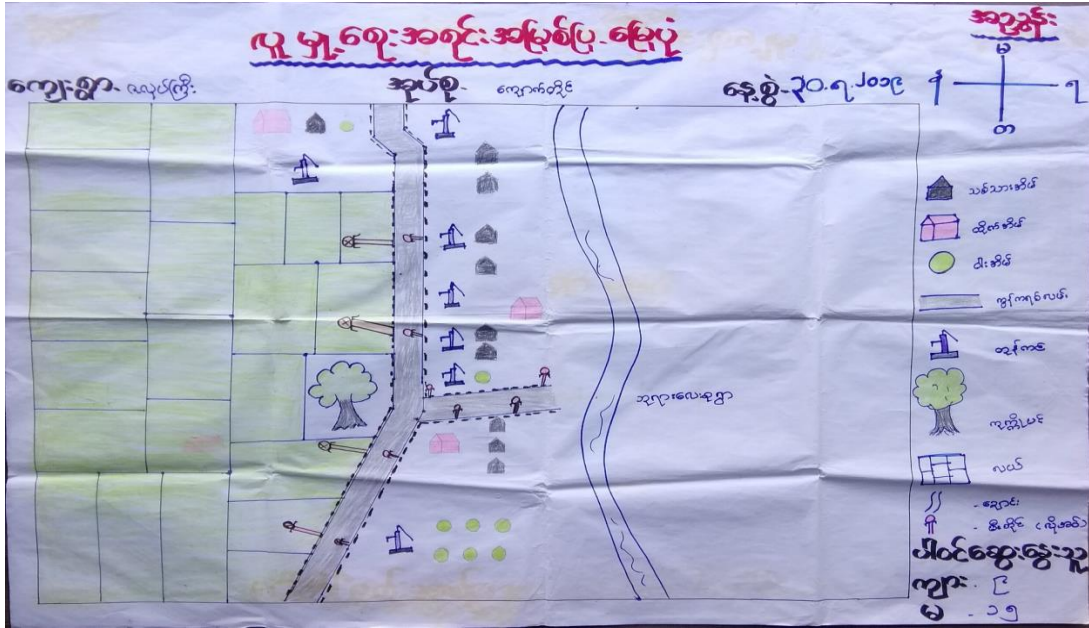 လူမှု့ရေးအရင်းအမြစ်ပြ မြေပုံ
ကျေးရွာ- ဇလုပ်ကြီး
အုပ်စု- ကျောက်တိုင်
နေ့စွဲ-၃၀.၇.၂၀၁၉
အညွှန်း
မ
န
ရ
တ
သစ်သားအိမ်
တိုက်အိမ်
ဝါးအိမ်
ကွန်ကရစ်လမ်း
တုန်ကင်
ကုက္ကိုပင်
လယ်
- ချောင်း
- မီးတိုင် (လိုအပ်)
ဘုရားလေးဆူရွာ
ပါဝင်ဆွေးနွေးသူ
ကျား - ၉
မ - ၁၅